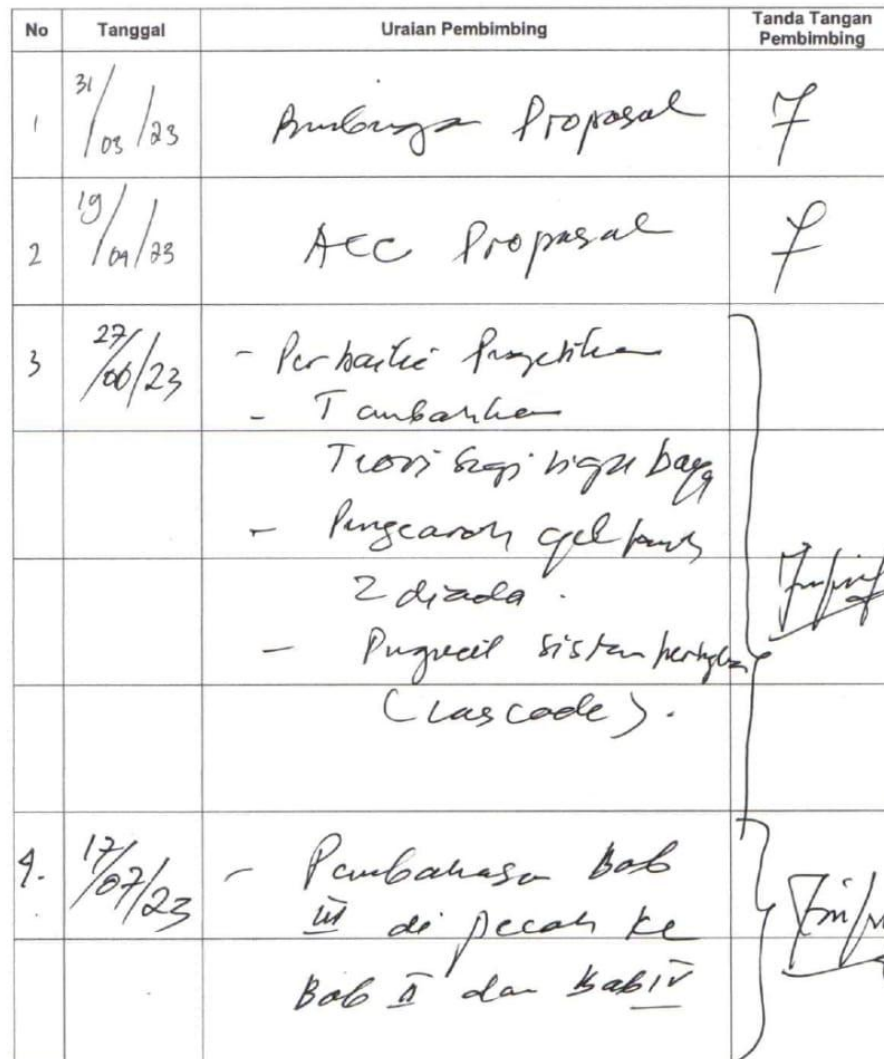 No Tanggal Uraian Pembimbing Tanda Tangan Pembimbing
1 31/03/23 Bimbingan Proposal
2 19/04/23 ACC Proposal
3 27/06/23 - Perbaiki
- Tambahkan
Teori segi tiga daya
-
2 dioda.
- sistem
(cascade).
4. 17/07/23 - Pembahasan Bab
III di pecah ke
Bab II dan Bab IV